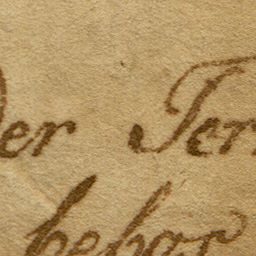 der Ter
behar